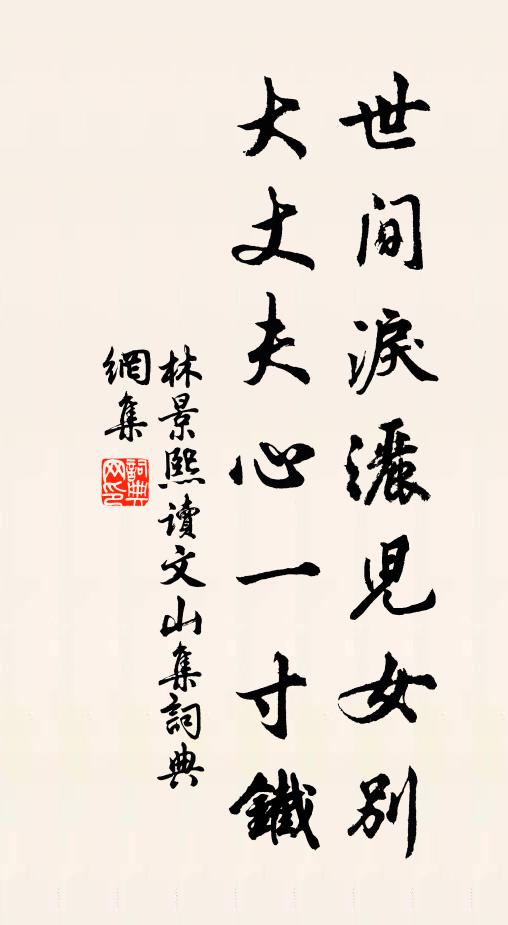 世间淚灑児女别
大丈夫心一寸鐵
林景熙讀文山集詞典
網集
詞典網印